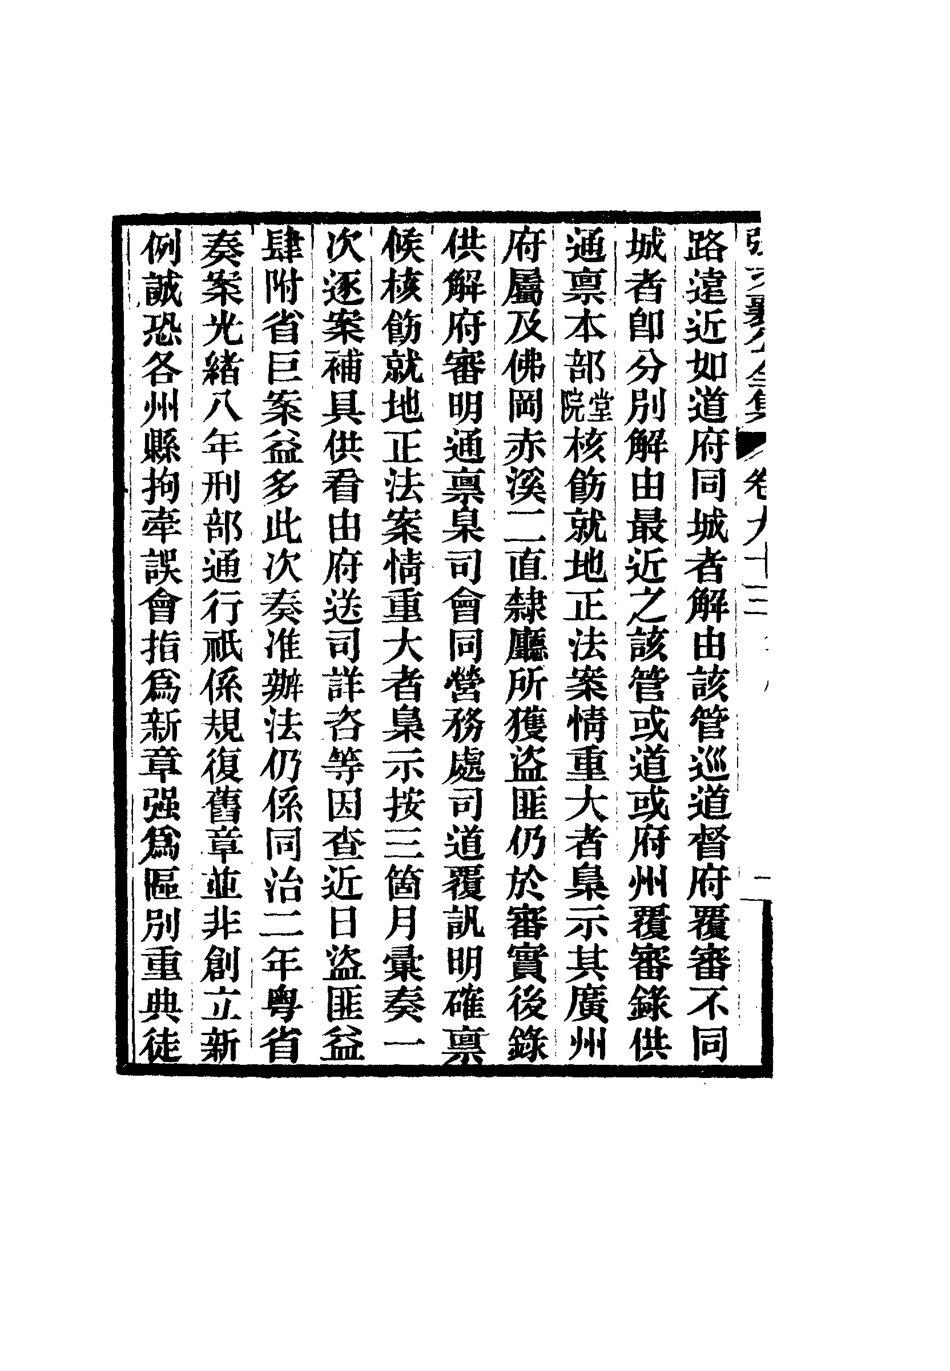 張文襄公全集 卷九十三
路遠近如道府同城者解由該管巡道督府覆審不同
城者卽分別解由最近之該管或道或府州覆審錄供
通稟本部堂院核飭就地正法案情重大者梟示其廣州
府屬及佛岡赤溪二直隸廳所獲盜匪仍於審實後錄
供解府審明通稟臬司會同營務處司道覆訊明確稟
候核飭就地正法案情重大者梟示按三箇月彙奏一
次逐案補具供看由府送司詳咨等因查近日盜匪益
肆附省巨案益多此次奏准辦法仍係同治二年粵省
奏案光緒八年刑部通行祇係規復舊章並非創立新
例誠恐各州縣拘牽誤會指爲新章强爲區別重典徒